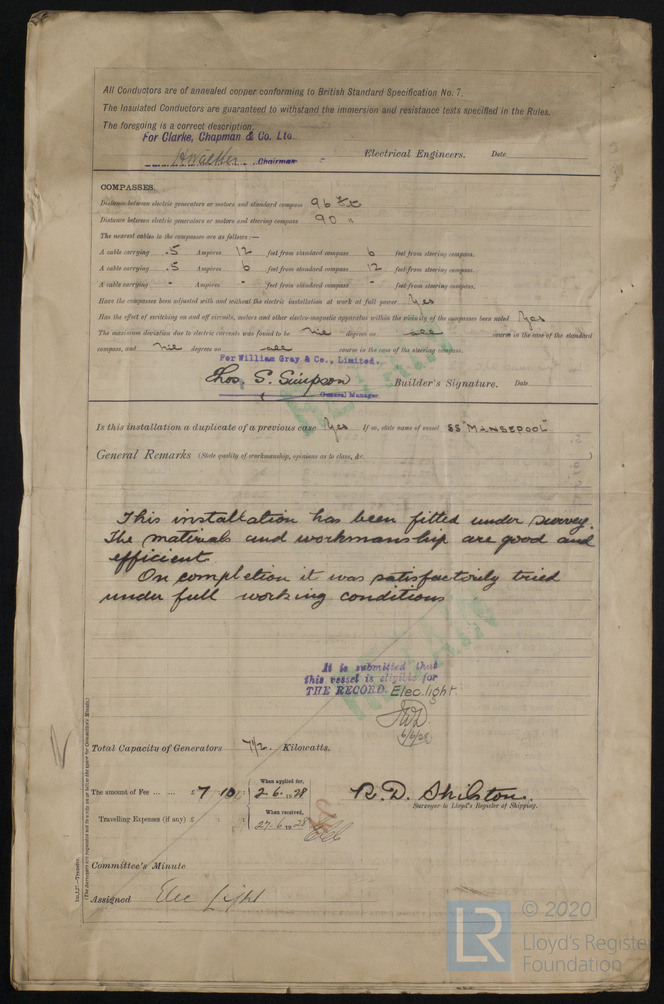 All Conductors are of annealed copper conforming to British Standard Specification No. 7.
The Insulated Conductors are guaranteed to withstand the immersion and resistance tests specified in the Rules.
The foregoing is a correct description,
For Clarke, Chapman & Co. Ltd.
Chairman Electrical Engineers. Date
COMPASSES.
Distance between electric generators or motors and standard compass 96 feet
Distance between electric generators or motors and steering compass 90 "
The nearest cables to the compasses are as follows:—
A cable carrying .5 Ampères 12 feet from standard compass 6 feet from steering compass.
A cable carrying .5 Ampères 6 feet from standard compass 12 feet from steering compass.
A cable carrying - Ampères - feet from standard compass - feet from steering compass.
Have the compasses been adjusted with and without the electric installation at work at full power Yes
Has the effect of switching on and off circuits, motors and other electro-magnetic apparatus within the vicinity of the compasses been noted Yes
The maximum deviation due to electric currents was found to be nil degrees on all course in the case of the standard
compass, and nil degrees on all course in the case of the steering compass.
For William Gray & Co., Limited.
Thos. S. Simpson Builder's Signature. Date
General Manager
Is this installation a duplicate of a previous case Yes If so, state name of vessel SS "MANSEPOOL"
General Remarks (State quality of workmanship, opinions as to class, &c. )
This installation has been fitted under survey.
The materials and workmanship are good and
efficient.
On completion it was satisfactorily tried
under full working conditions
It is submitted that
this vessel is eligible for
THE RECORD. Elec. light.
6/6/28
Total Capacity of Generators 7½ Kilowatts.
The amount of Fee ... ... £ 7 : 10 : When applied for, 2.6.1928
R. D. Shilston.
Surveyor to Lloyd's Register of Shipping.
Travelling Expenses (if any) £ : : When received, 27.6.1928
Committee's Minute
Assigned Elec Light
(The Surveyors are requested not to write on or below the space for Committee's Minute.)
© 2020
LR
Lloyd's Register
Foundation